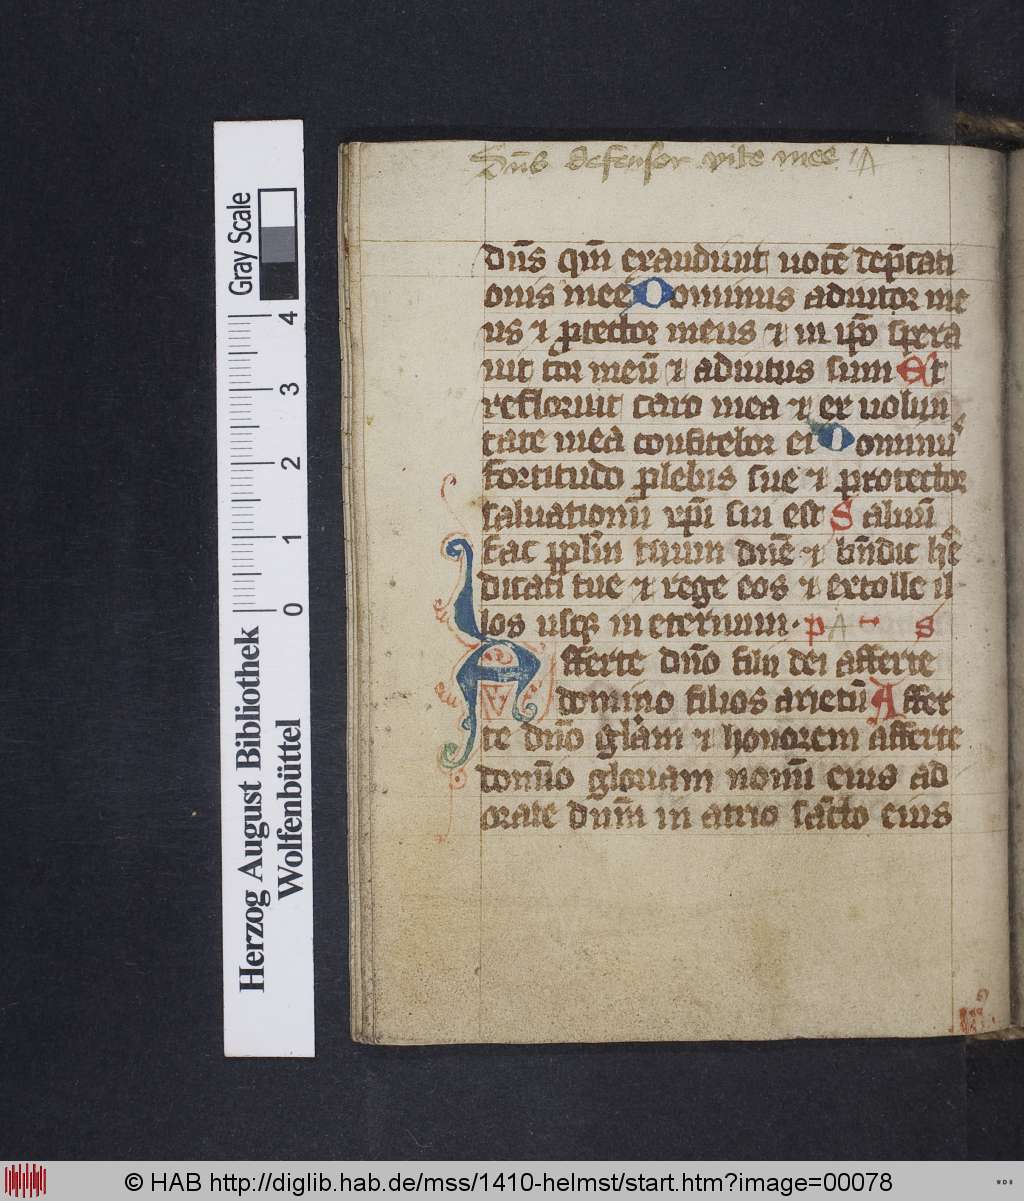 Dn̄s defensor vite mee A
dn̄s qm̄ exaudiuit uocē dep̄cati
onis mee Dominus adiutor me
us ⁊ ꝓtector meus ⁊ in ip̄o spera
uit cor meū ⁊ adiutus sum Et
refloruit caro mea ⁊ ex uolun
tate mea confitebor ei Dominꝰ
fortitudo plebis sue ⁊ protector
saluationū xp̄i sui est Saluū
fac ppl̄m tuum dn̄e ⁊ bn̄dic he
ditati tue ⁊ rege eos ⁊ extolle il
los usqꝫ in eternum · p A s
Afferte dn̄o filii dei afferte
domino filios arietū Affer
te dn̄o gl̄am ⁊ honorem afferte
domī̄o gloriam nomī eius ad
orate dn̄m in atrio sācto eius
Herzog August Bibliothek
Wolfenbüttel
Gray Scale
0 1 2 3 4
© HAB http://diglib.hab.de/mss/1410-helmst/start.htm?image=00078
WDB